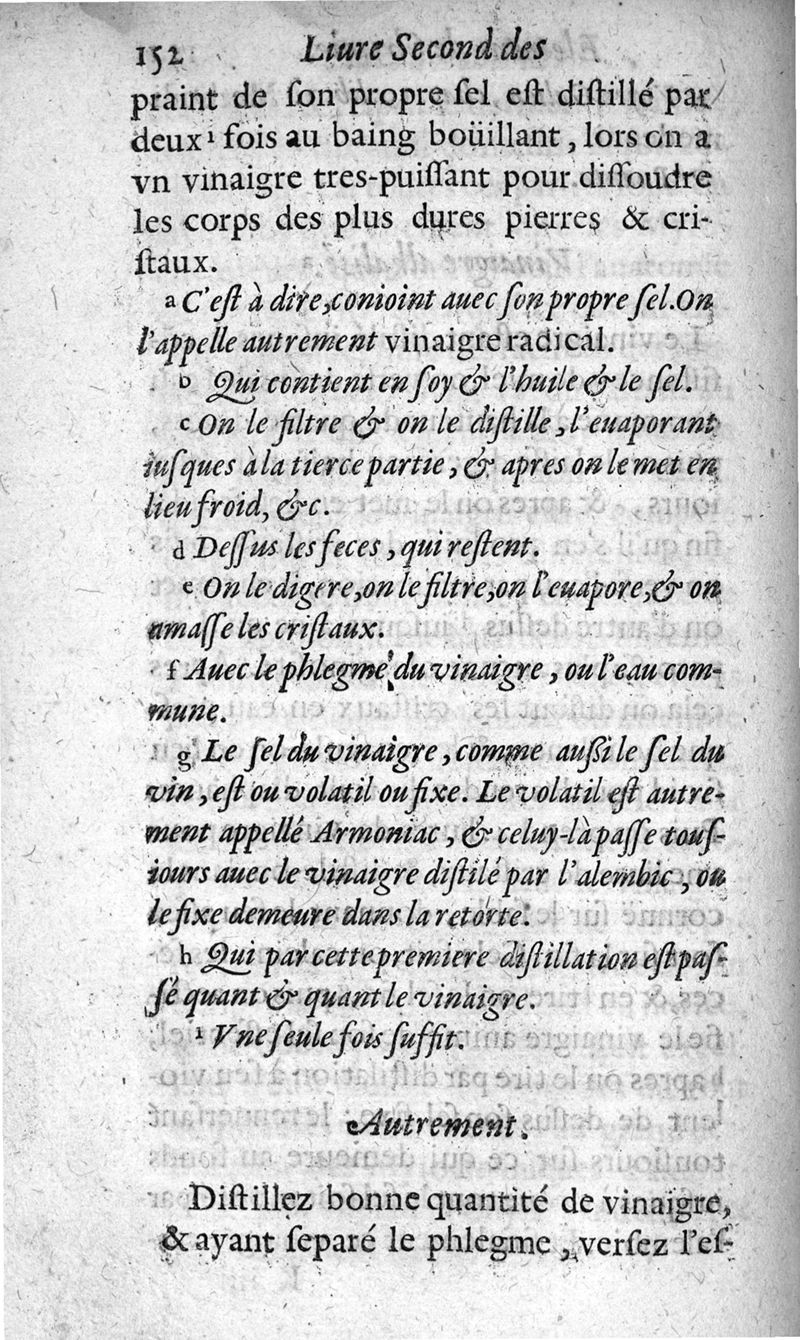 152 Liure Second des
praint de ſon propre ſel eſt diſtillé par
deux¹ fois au baing boüillant, lors on a
vn vinaigre tres-puiſſant pour diſſoudre
les corps des plus dures pierres & cri-
ſtaux.
a C'eſt à dire, conioint auec ſon propre ſel. On
l'appelle autrement vinaigre radical.
b Qui contient en ſoy & l'huile & le ſel.
c On le filtre & on le diſtille, l'euaporant
iuſques à la tierce partie, & apres on le met en
lieu froid, &c.
d Deſſus les feces, qui reſtent.
e On le digere, on le filtre, on l'euapore, & on
amaſſe les criſtaux.
f Auec le phlegme du vinaigre, ou l'eau com-
mune.
g Le ſel du vinaigre, comme auſſi le ſel du
vin, eſt ou volatil ou fixe. Le volatil eſt autre-
ment appellé Armoniac, & celuy-là paſſe touſ-
iours auec le vinaigre diſtilé par l'alembic, ou
le fixe demeure dans la retorte.
h Qui par cette premiere diſtillation eſt paſ-
ſé quant & quant le vinaigre.
¹ Vne ſeule fois ſuffit.
Autrement.
Diſtillez bonne quantité de vinaigre,
& ayant ſeparé le phlegme, verſez l'eſ-